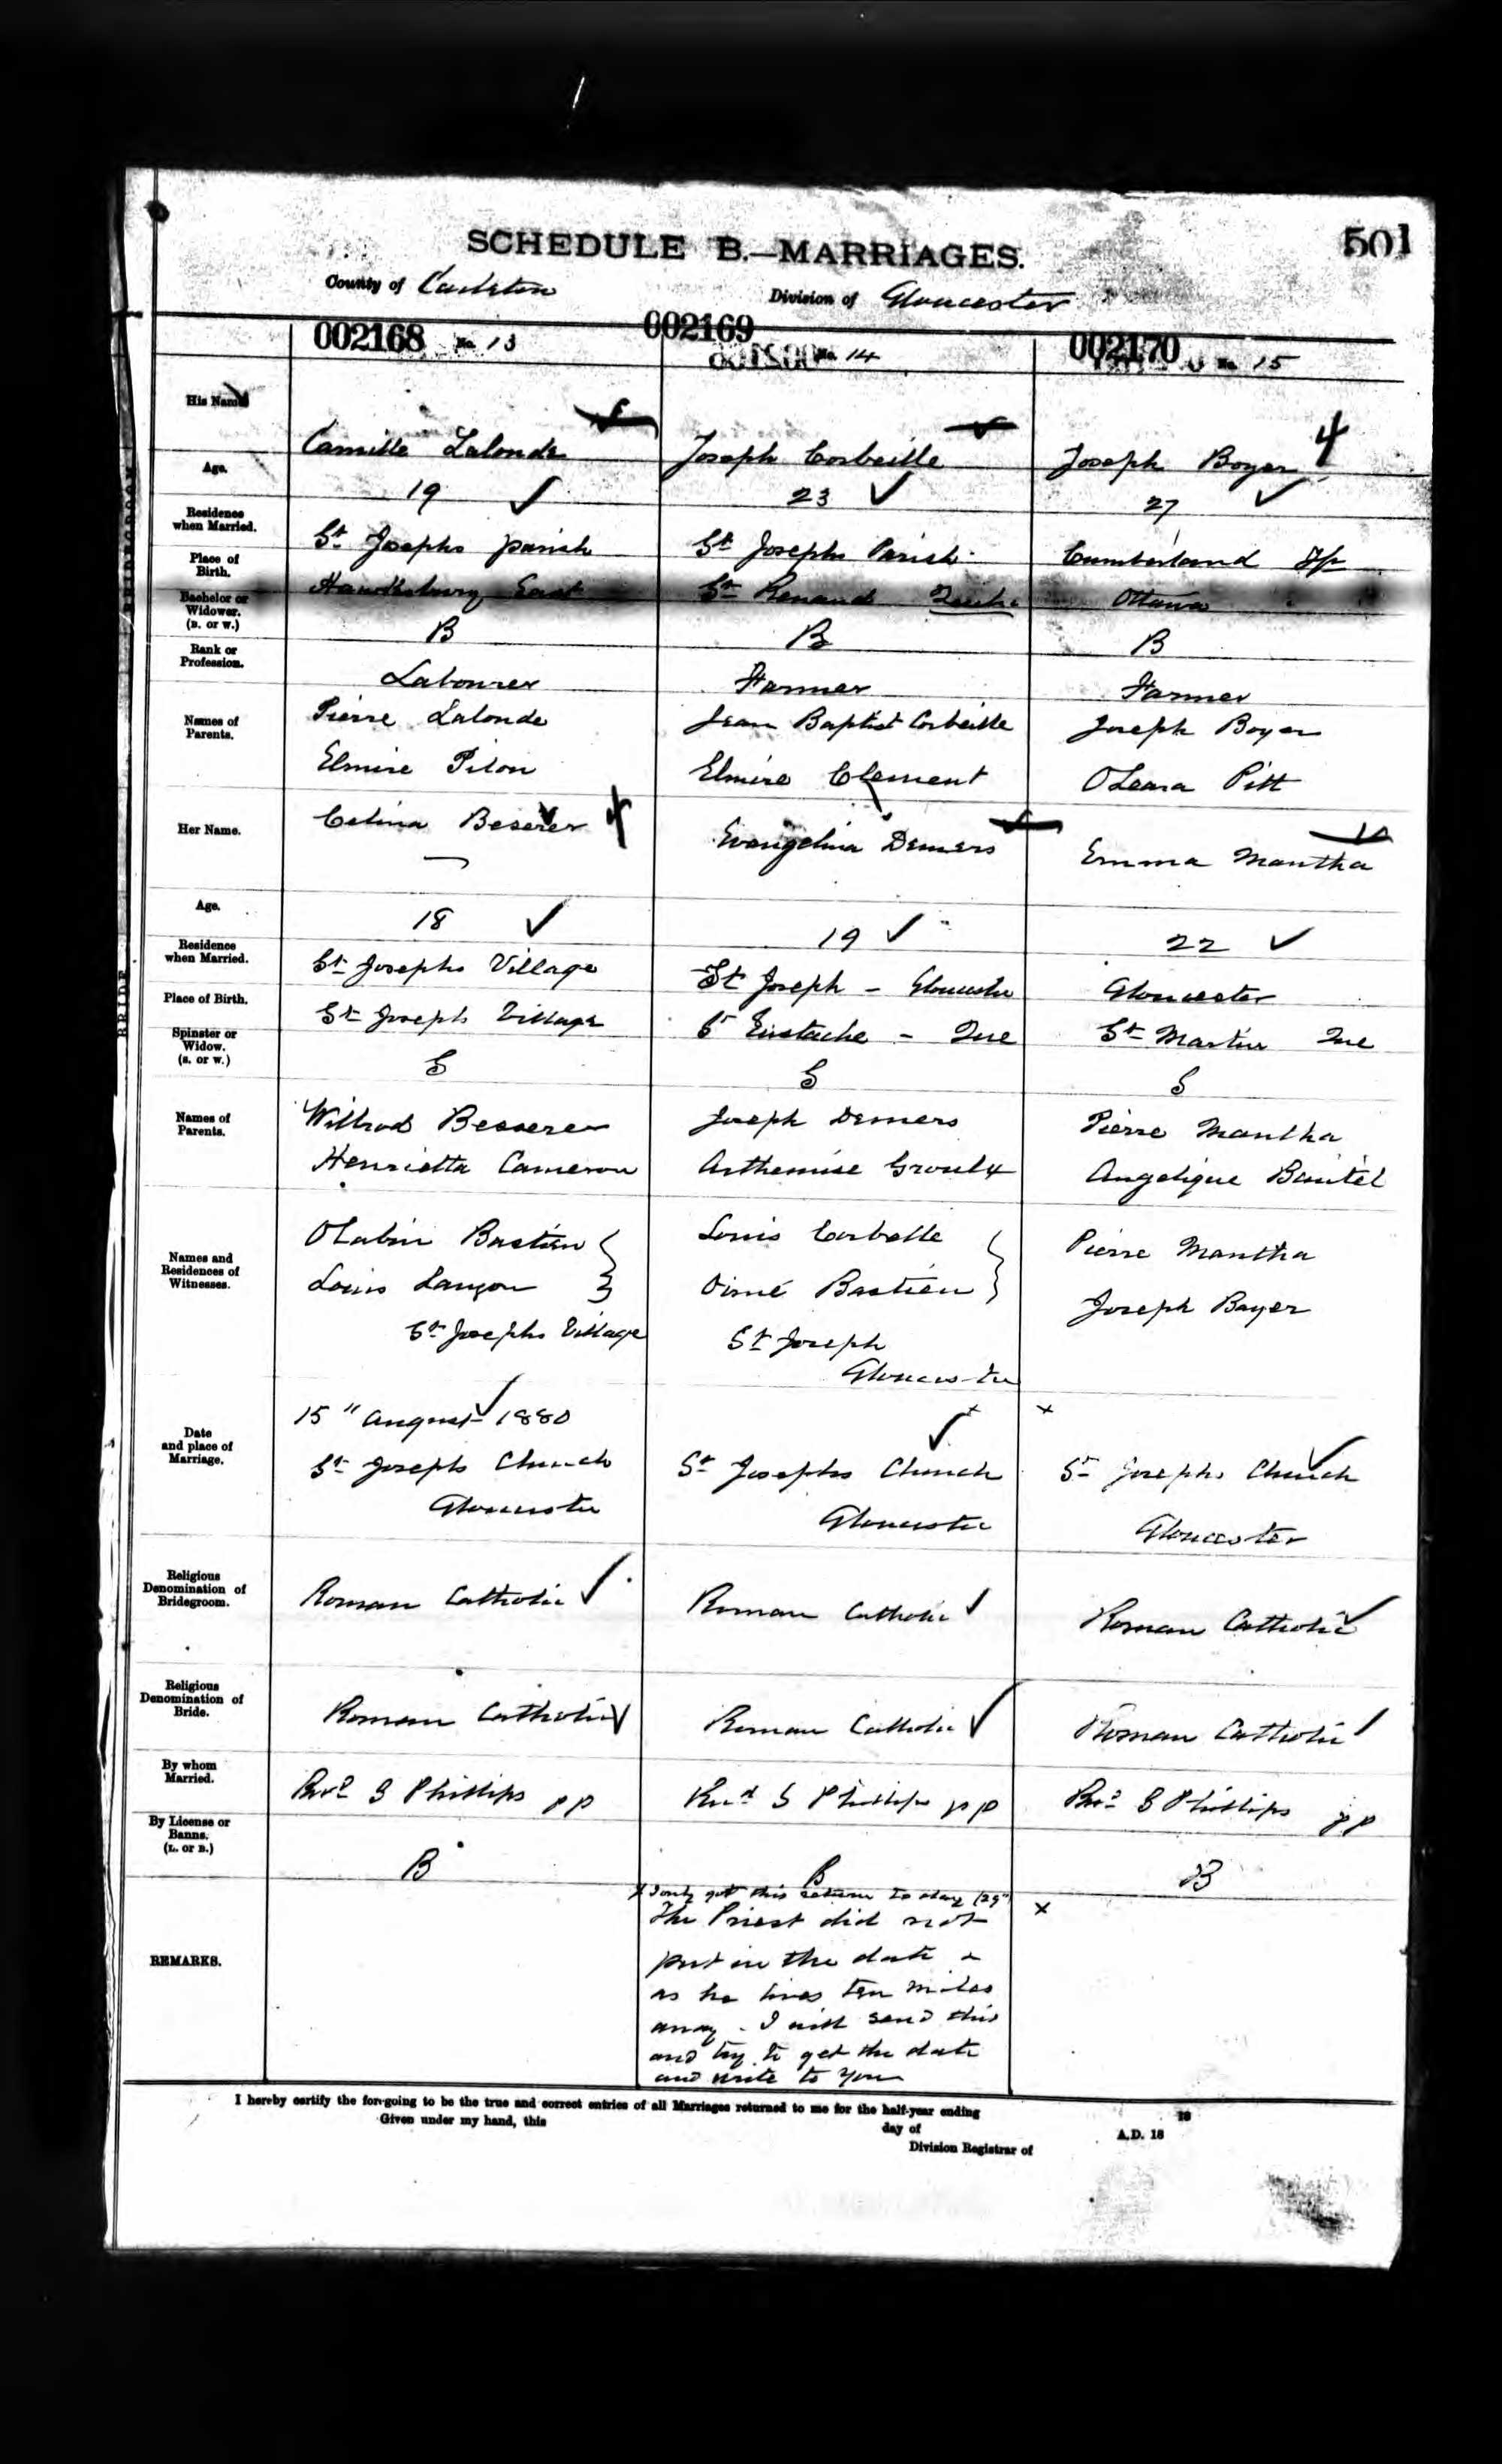 501
SCHEDULE B.—MARRIAGES.
County of Carleton Division of Gloucester
002168 No. 13 002169 No. 14 002170 No. 15
His Name Camille Lalonde Joseph Corbeille Joseph Boyer 4
Age. 19 23 27
Residence when Married. St Josephs parish St Josephs Parish Cumberland Tp
Place of Birth. Hawksbury East St Ottawa
Bachelor or Widower. (B. or W.) B B B
Rank or Profession. Labourer Farmer Farmer
Names of Parents. Pierre Lalonde Jean Baptist Corbeille Joseph Boyer
Elmire Pilon Elmire Clement OLeara Pitt
Her Name. Celina Beserer 4 Evangelina Demers Emma Mantha
Age. 18 19 22
Residence when Married. St Josephs Village St Joseph - Gloucester Gloucester
Place of Birth. St Joseph Village St Eustache - Que St Martin Que
Spinster or Widow. (S. or W.) S S S
Names of Parents. Wilbrod Besserer Joseph Demers Pierre Mantha
Henrietta Cameron Arthemise Groulx Angelique
Names and Residences of Witnesses. Bastien Louis Corbelle Pierre Mantha
Louis Bastien Joseph Boyer
St Josephs Village St Joseph
Gloucester
Date and place of Marriage. 15" August 1880 x x
St Josephs Church St Josephs Church St Josephs Church
Gloucester Gloucester Gloucester
Religious Denomination of Bridegroom. Roman Catholic Roman Catholic Roman Catholic
Religious Denomination of Bride. Roman Catholic Roman Catholic Roman Catholic
By whom Married. Revd S Phillips PP Revd S Phillips PP Revd S Phillips PP
By License or Banns. (L. or B.) B B B
REMARKS. x I only got this return to day (29") x
The Priest did not
put in the date &
as he lives ten miles
away. I will send this
and try to get the date
and write to you
I hereby certify the foregoing to be the true and correct entries of all Marriages returned to me for the half-year ending 18
Given under my hand, this day of A.D. 18
Division Registrar of
BRIDEGROOM
BRIDE